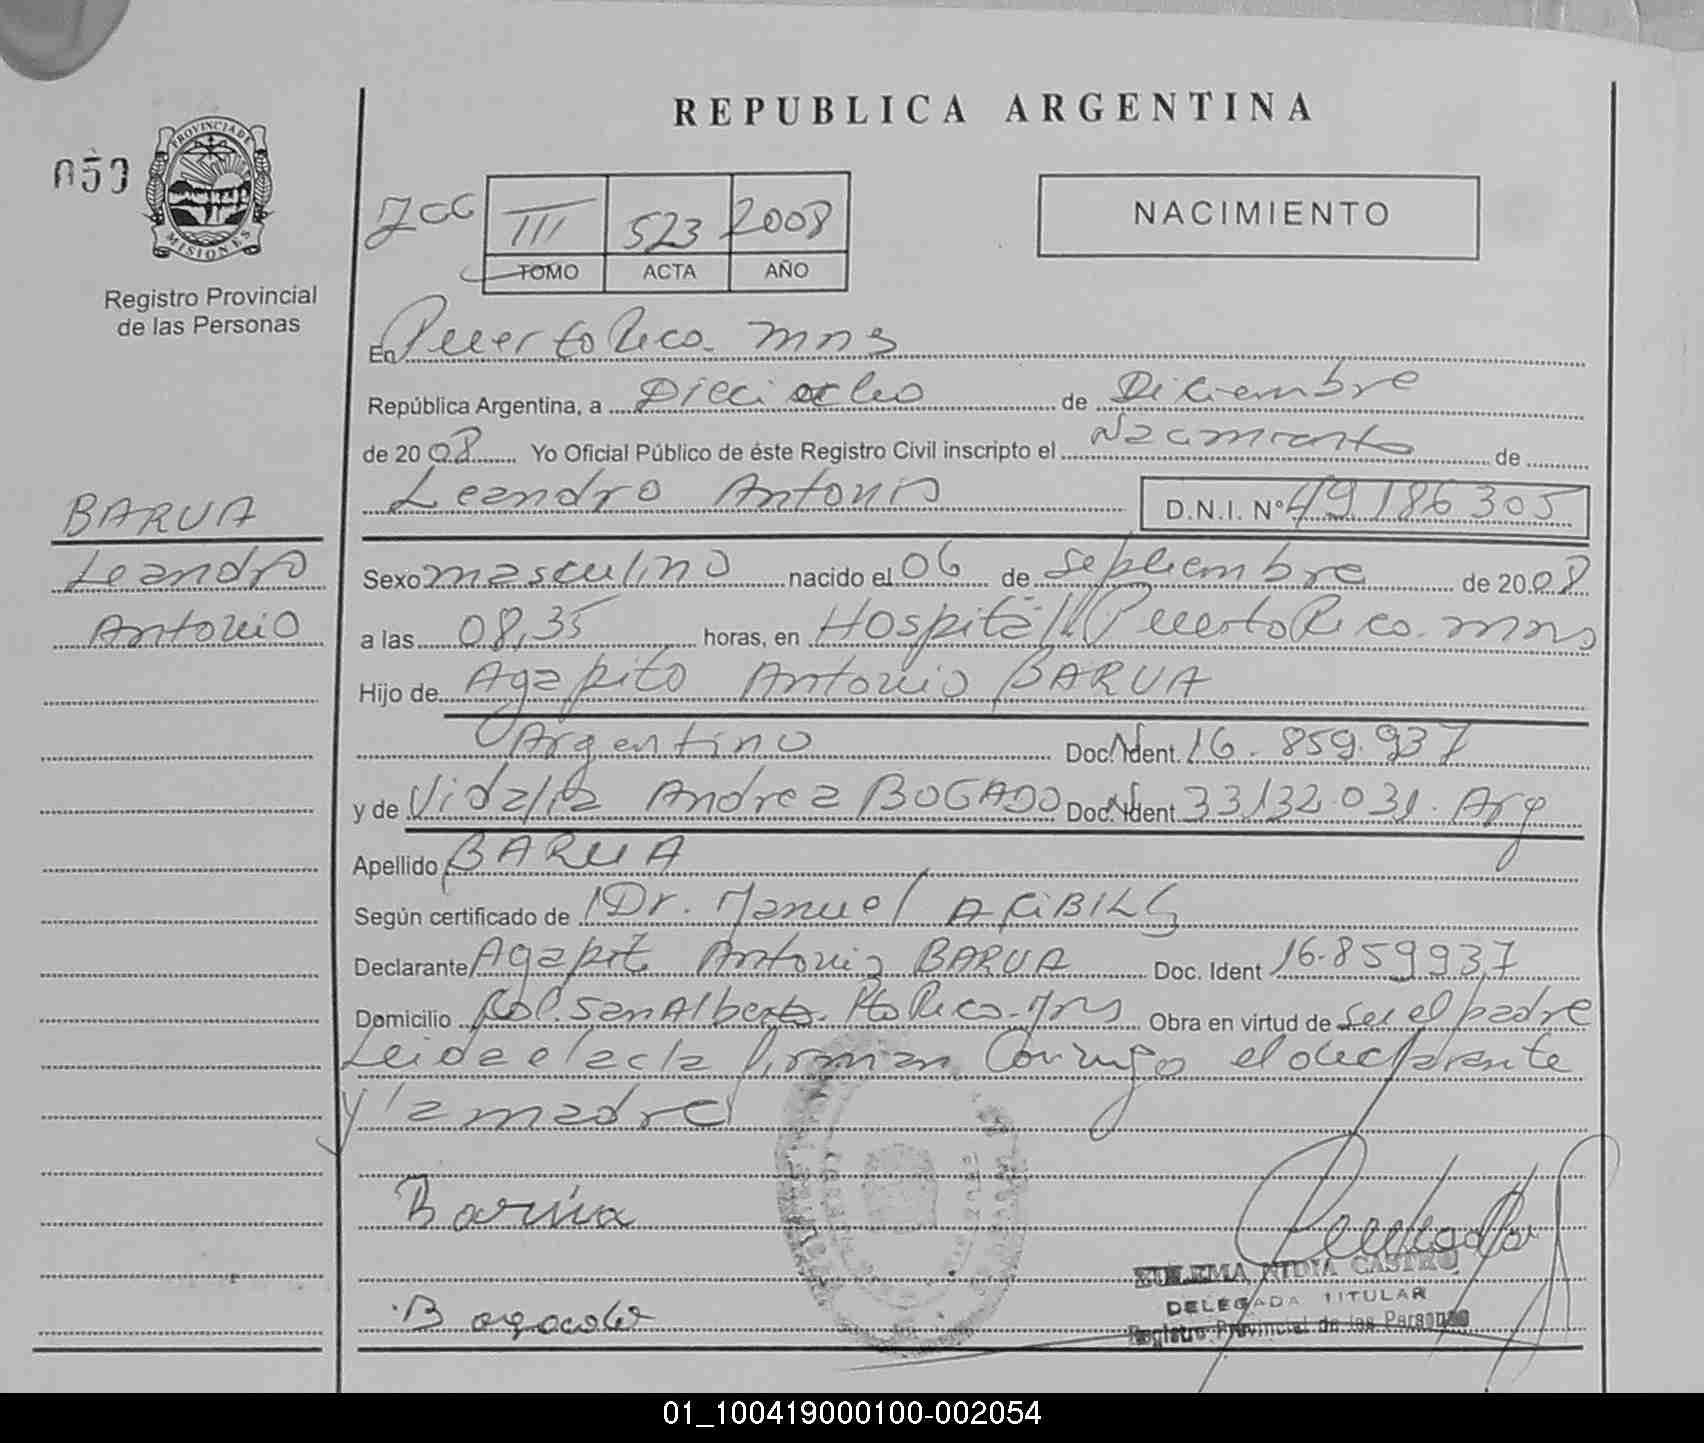 REPUBLICA ARGENTINA
050
PROVINCIA DE
MISIONES
Registro Provincial
de las Personas
III 523 2008
TOMO ACTA AÑO
NACIMIENTO
En Puerto Rico. mns
República Argentina, a Dieciocho de Diciembre
de 2008 Yo Oficial Público de éste Registro Civil inscripto el Nacimiento de
Leandro Antonio D.N.I. Nº 49186305
BARUA
Leandro
Antonio
Sexo masculino nacido el 06 de septiembre de 2008
a las 08,35 horas, en Hospital Puerto Rico. mns
Hijo de Agapito Antonio BARUA
Argentino Doc. Ident. 16.859.937
y de Vidalia Andrea BOGADO Doc. Ident 33132.031. Arg
Apellido BARUA
Según certificado de Dr. Manuel
Declarante Agapito Antonio BARUA Doc. Ident 16.859937
Domicilio Col. San Alberto. Pto Rico. Mns Obra en virtud de ser el padre
Leida el acta firman Conmigo el declarante
y la madre
Barúa
Bogado
ZULEMA NIDIA CASTRO
DELEGADA TITULAR
Registro Provincial de las Personas
01_100419000100-002054